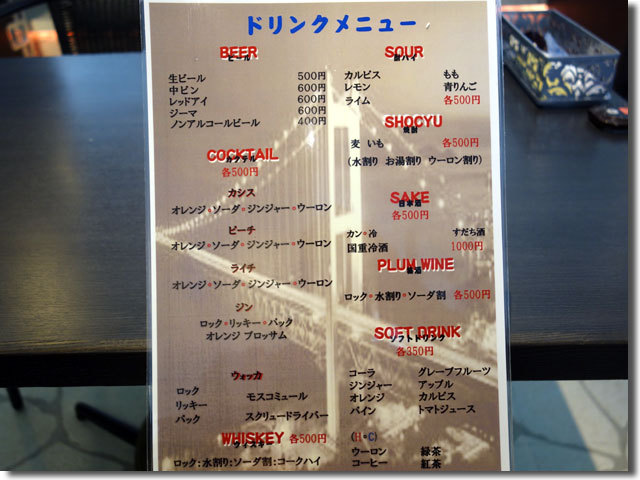 ドリンクメニュー
BEER
ビール
生ビール 500円
中ビン 600円
レッドアイ 600円
ジーマ 600円
ノンアルコールビール 400円
COCKTAIL
カクテル
各500円
カシス
オレンジ・ソーダ・ジンジャー・ウーロン
ピーチ
オレンジ・ソーダ・ジンジャー・ウーロン
ライチ
オレンジ・ソーダ・ジンジャー・ウーロン
ジン
ロック・リッキー・バック
オレンジ ブロッサム
ウォッカ
ロック モスコミュール
リッキー
バック スクリュードライバー
WHISKEY 各500円
ウィスキー
ロック:水割り:ソーダ割:コークハイ
SOUR
酎ハイ
カルピス もも
レモン 青りんご
ライム 各500円
SHOCYU
焼酎
麦 いも 各500円
(水割り お湯割り ウーロン割り)
SAKE
日本酒
各500円
カン・冷 すだち酒
国重冷酒 1000円
PLUM WINE
梅酒
ロック・水割り・ソーダ割 各500円
SOFT DRINK
ソフトドリンク
各350円
コーラ グレープフルーツ
ジンジャー アップル
オレンジ カルピス
パイン トマトジュース
(H・C)
ウーロン 緑茶
コーヒー 紅茶